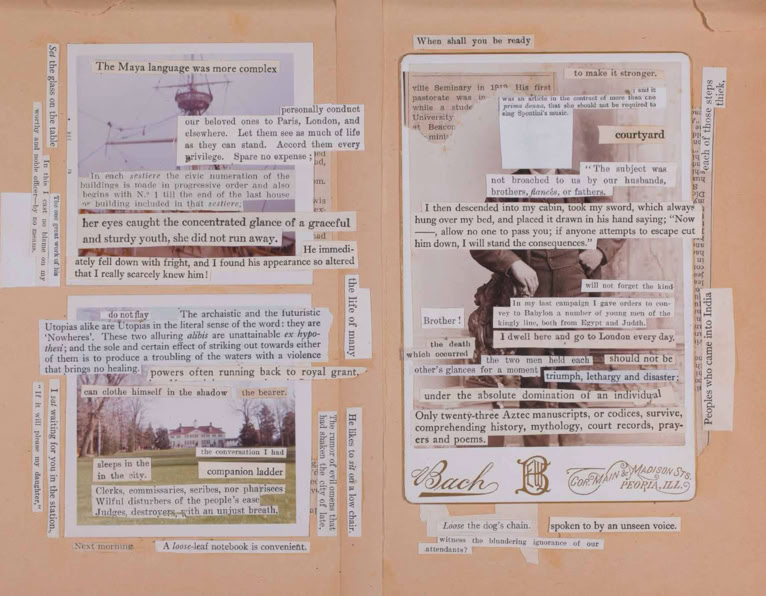 Set the glass on the table
worthy and noble officer—by no means.
In this I cast no blame on my
The one great work of his
The Maya language was more complex
personally conduct
our beloved ones to Paris, London, and
elsewhere. Let them see as much of life
as they can stand. Accord them every
privilege. Spare no expense;
In each sestiere the civic numeration of the
buildings is made in progressive order and also
begins with N.º 1 till the end of the last house
or building included in that sestiere.
her eyes caught the concentrated glance of a graceful
and sturdy youth, she did not run away.
He immedi-
ately fell down with fright, and I found his appearance so altered
that I really scarcely knew him!
the life of many
do not flay
The archaistic and the futuristic
Utopias alike are Utopias in the literal sense of the word; they are
'Nowheres'. These two alluring alibis are unattainable ex hypo-
thesi; and the sole and certain effect of striking out towards either
of them is to produce a troubling of the waters with a violence
that brings no healing.
powers often running back to royal grant,
can clothe himself in the shadow
the bearer.
the conversation I had
sleeps in the
in the city.
companion ladder
Clerks, commissaries, scribes, nor pharisees
Wilful disturbers of the people's ease
Judges, destroyers, with an unjust breath,
"If it will please my daughter."
I sat waiting for you in the station,
The rumor of evil omens that
had shaken the city of late.
He likes to sit on a low chair.
Next morning.
A loose-leaf notebook is convenient.
When shall you be ready
to make it stronger.
ville Seminary in 1912. His first
pastorate was in
while a stude
University
at Beacon
; and it
was an article in the contract of more than one
prima donna, that she should not be required to
sing Spontini's music.
courtyard
"The subject was
not broached to us by our husbands,
brothers, fiancés, or fathers.
I then descended into my cabin, took my sword, which always
hung over my bed, and placed it drawn in his hand saying; "Now
——, allow no one to pass you; if anyone attempts to escape cut
him down, I will stand the consequences."
will not forget the kind
In my last campaign I gave orders to con-
vey to Babylon a number of young men of the
kingly line, both from Egypt and Judah.
Brother!
I dwell here and go to London every day.
the death
which occurred
the two men held each
other's glances for a moment
should not be
triumph, lethargy and disaster;
under the absolute domination of an individual
Only twenty-three Aztec manuscripts, or codices, survive,
comprehending history, mythology, court records, pray-
ers and poems.
Bach
Cor. Main & Madison Sts.
Peoria, Ill.
each of those steps
thick,
Peoples who came into India
Loose the dog's chain.
spoken to by an unseen voice.
witness the blundering ignorance of our
attendants?